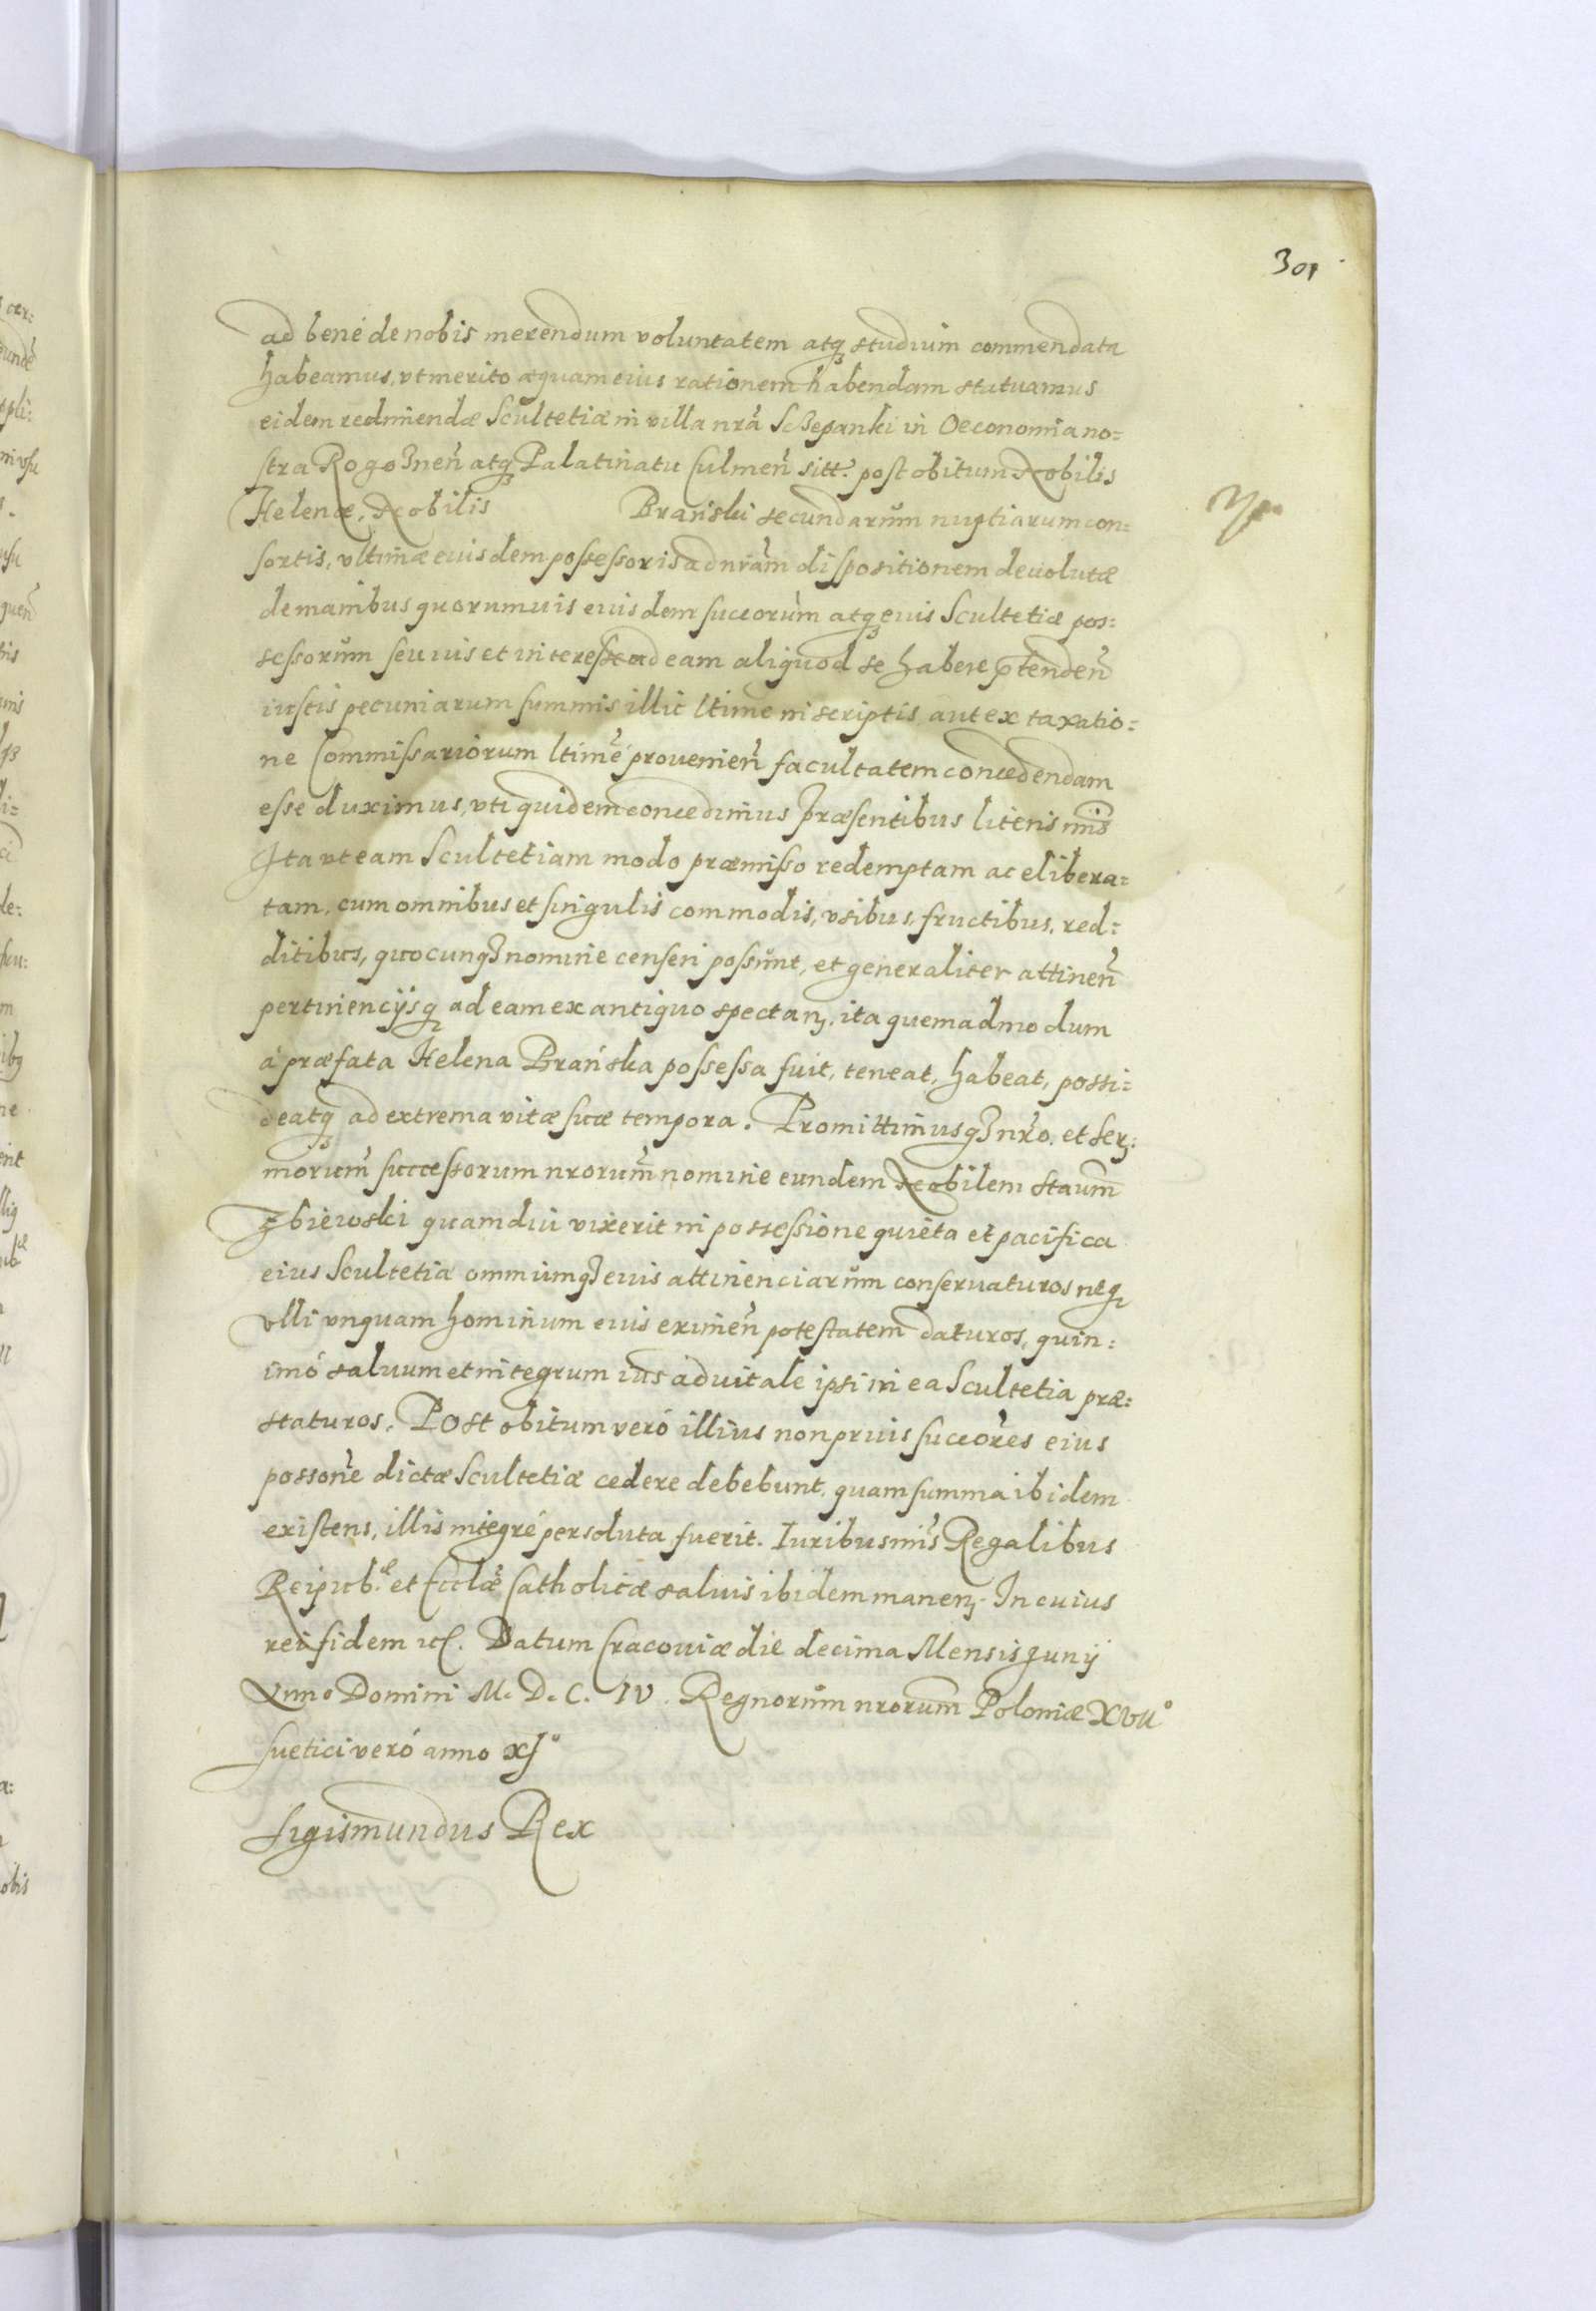 301
ad bene de nobis merendum voluntatem atq studium commendata
habeamus, vt merito æquam eius rationem habendam statuamus
eidem redimendæ Scultetiæ in villa nrã Sczepanki in Oeconomia no=
stra Rogoznen atq Palatinatu Culmen sitt. post obitum Nobilis
Helenæ, Nobilis Brański secundarum nuptiarum con=
sortis, vltimæ eiusdem possessoris ad nram dispositionem deuolutæ
de manibus quorumuis eiusdem succorum atq eius Scultetiæ pos=
sessorum seu ius et interesse ad eam aliquod se habere ptenden
iustis pecuniarum summis illic ltime inscriptis aut ex taxatio=
ne Commissariorum ltime prouenien facultatem concedendam
esse duximus, vti quidem concedimus præsentibus literis nris
Ita vt eam Scultetiam modo præmisso redemptam ac elibera=
tam, cum omnibus et singulis commodis, vsibus, fructibus, red=
ditibus, quocunq nomine censeri possunt, et generaliter attinen
pertinencijsq ad eam ex antiquo spectan, ita quemadmodum
à præfata Helena Brańska possessa fuit, teneat, habeat, possi=
deatq ad extrema vitæ suæ tempora. Promittimusq nro, et Ser=
morum successorum nrorum nomine eundem Nobilem Staum
Zbiewski quamdiu vixerit in possessione quieta et pacifica
eius Scultetiæ omniumq eius attinenciarum conseruaturos neq
vlli vnquam hominum eius eximen potestatem daturos, quin=
imó saluum et integrum ius aduitale ipsi in ea Scultetia præ=
staturos. Post obitum veró illius non prius succores eius
possone dictæ Scultetiæ cedere debebunt, quam summa ibidem
existens, illis integré persoluta fuerit. Iuribus nris Regalibus
Reipub.æ et Ecclæ Catholicæ saluis ibidem manen. In cuius
rei fidem etc. Datum Cracouiæ die decima Mensis Junij
Anno Domini M. D. C. IV. Regnorum nrorum Poloniæ XVII°
Suetici veró anno XI°
Sigismundus Rex